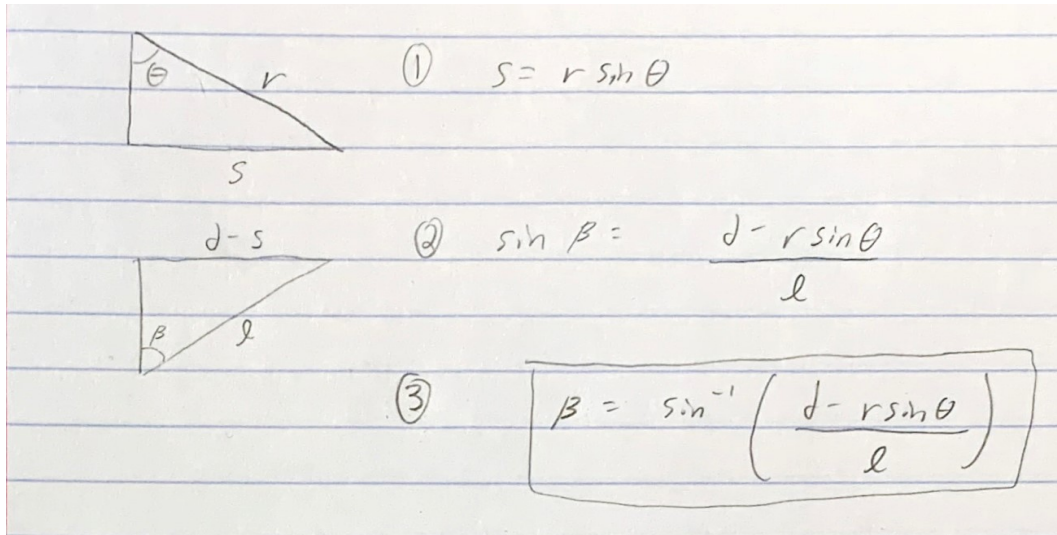 θ r ① s = r sin θ
s
d - s ② sin β = d - r sin θ / l
β l
③ β = sin⁻¹ ( d - r sin θ / l )